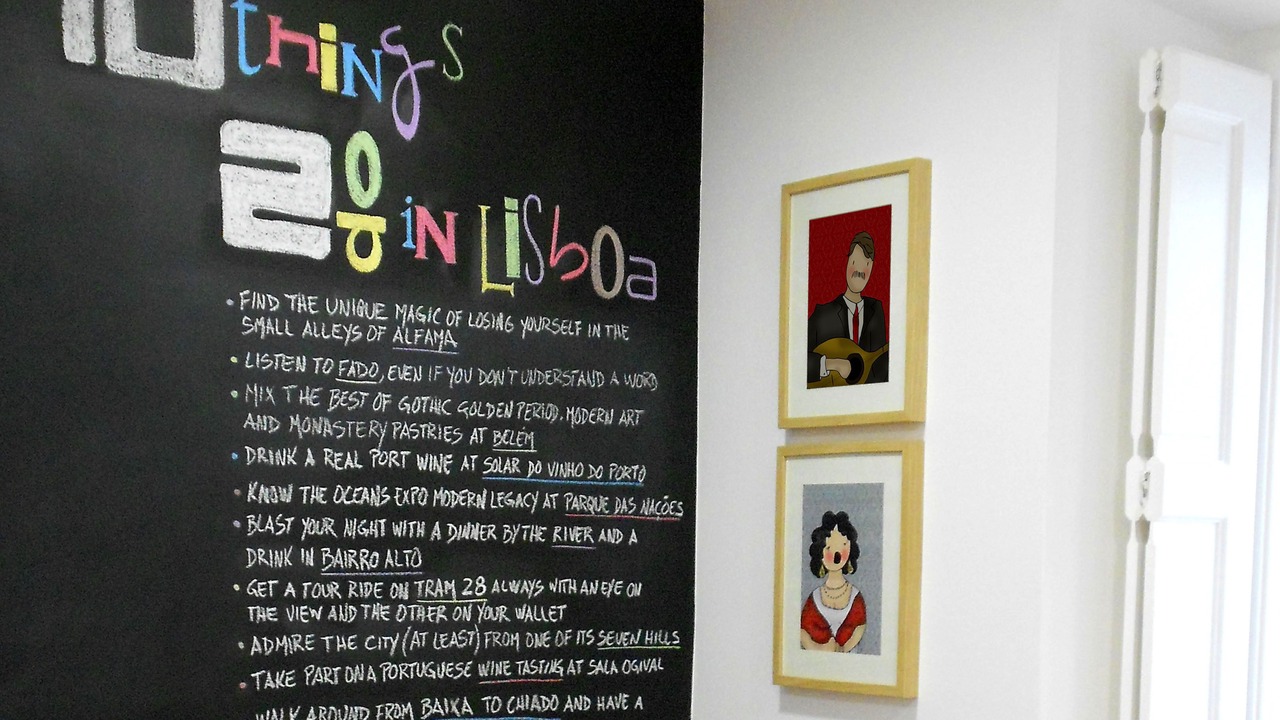 10 things
2 do in Lisboa
• FIND THE UNIQUE MAGIC OF LOSING YOURSELF IN THE
SMALL ALLEYS OF ALFAMA
• LISTEN TO FADO, EVEN IF YOU DON'T UNDERSTAND A WORD
• MIX THE BEST OF GOTHIC GOLDEN PERIOD, MODERN ART
AND MONASTERY PASTRIES AT BELÉM
• DRINK A REAL PORT WINE AT SOLAR DO VINHO DO PORTO
• KNOW THE OCEANS EXPO MODERN LEGACY AT PARQUE DAS NAÇÕES
• BLAST YOUR NIGHT WITH A DINNER BY THE RIVER AND A
DRINK IN BAIRRO ALTO
• GET A TOUR RIDE ON TRAM 28 ALWAYS WITH AN EYE ON
THE VIEW AND THE OTHER ON YOUR WALLET
• ADMIRE THE CITY (AT LEAST) FROM ONE OF ITS SEVEN HILLS
• TAKE PART ON A PORTUGUESE WINE TASTING AT SALA OGIVAL
WALK AROUND FROM BAIXA TO CHIADO AND HAVE A